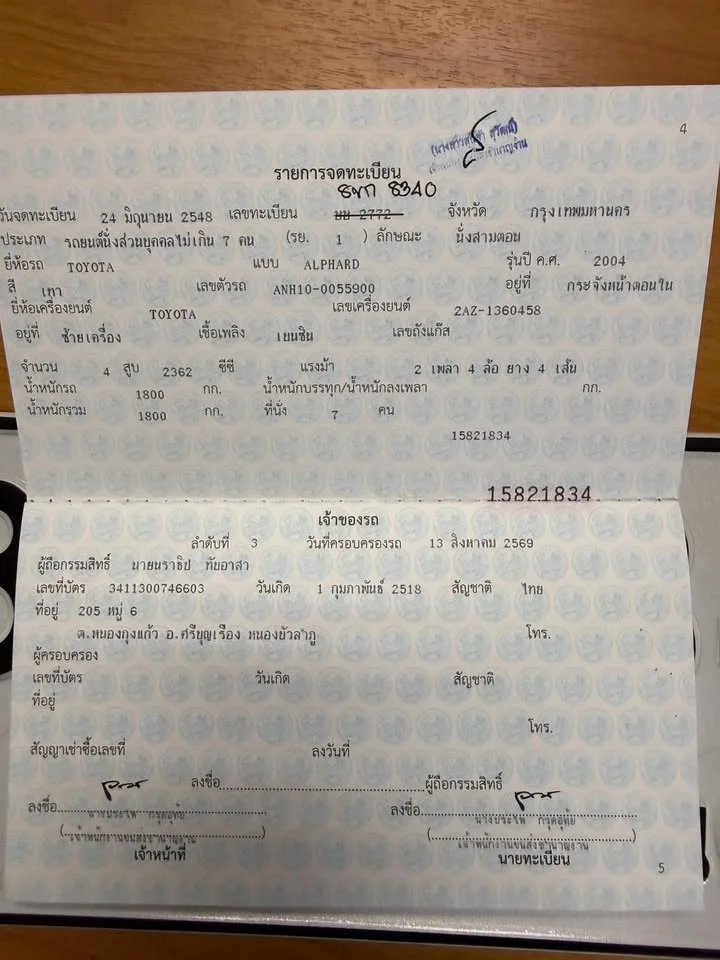 4
รายการจดทะเบียน
8ขก 8340
วันจดทะเบียน 24 มิถุนายน 2548 เลขทะเบียน ษษ 2772 จังหวัด กรุงเทพมหานคร
ประเภท รถยนต์นั่งส่วนบุคคลไม่เกิน 7 คน (รย. 1 ) ลักษณะ นั่งสามตอน
ยี่ห้อรถ TOYOTA แบบ ALPHARD รุ่นปี ค.ศ. 2004
สี เทา เลขตัวรถ ANH10-0055900 อยู่ที่ กระจังหน้าตอนใน
ยี่ห้อเครื่องยนต์ TOYOTA เลขเครื่องยนต์ 2AZ-1360458
อยู่ที่ ซ้ายเครื่อง เชื้อเพลิง เบนซิน เลขถังแก๊ส
จำนวน 4 สูบ 2362 ซีซี แรงม้า 2 เพลา 4 ล้อ ยาง 4 เส้น
น้ำหนักรถ 1800 กก. น้ำหนักบรรทุก/น้ำหนักลงเพลา กก.
น้ำหนักรวม 1800 กก. ที่นั่ง 7 คน
15821834
15821834
เจ้าของรถ
ลำดับที่ 3 วันที่ครอบครองรถ 13 สิงหาคม 2569
ผู้ถือกรรมสิทธิ์ นายนราธิป ทัยอาสา
เลขที่บัตร 3411300746603 วันเกิด 1 กุมภาพันธ์ 2518 สัญชาติ ไทย
ที่อยู่ 205 หมู่ 6
ต.หนองกุงแก้ว อ.ศรีบุญเรือง หนองบัวลำภู โทร.
ผู้ครอบครอง
เลขที่บัตร วันเกิด สัญชาติ
ที่อยู่
โทร.
สัญญาเช่าซื้อเลขที่ ลงวันที่
ลงชื่อ ผู้ถือกรรมสิทธิ์
ลงชื่อ ลงชื่อ
(เจ้าพนักงานขนส่งชำนาญงาน) (เจ้าพนักงานขนส่งชำนาญงาน)
เจ้าหน้าที่ นายทะเบียน
5